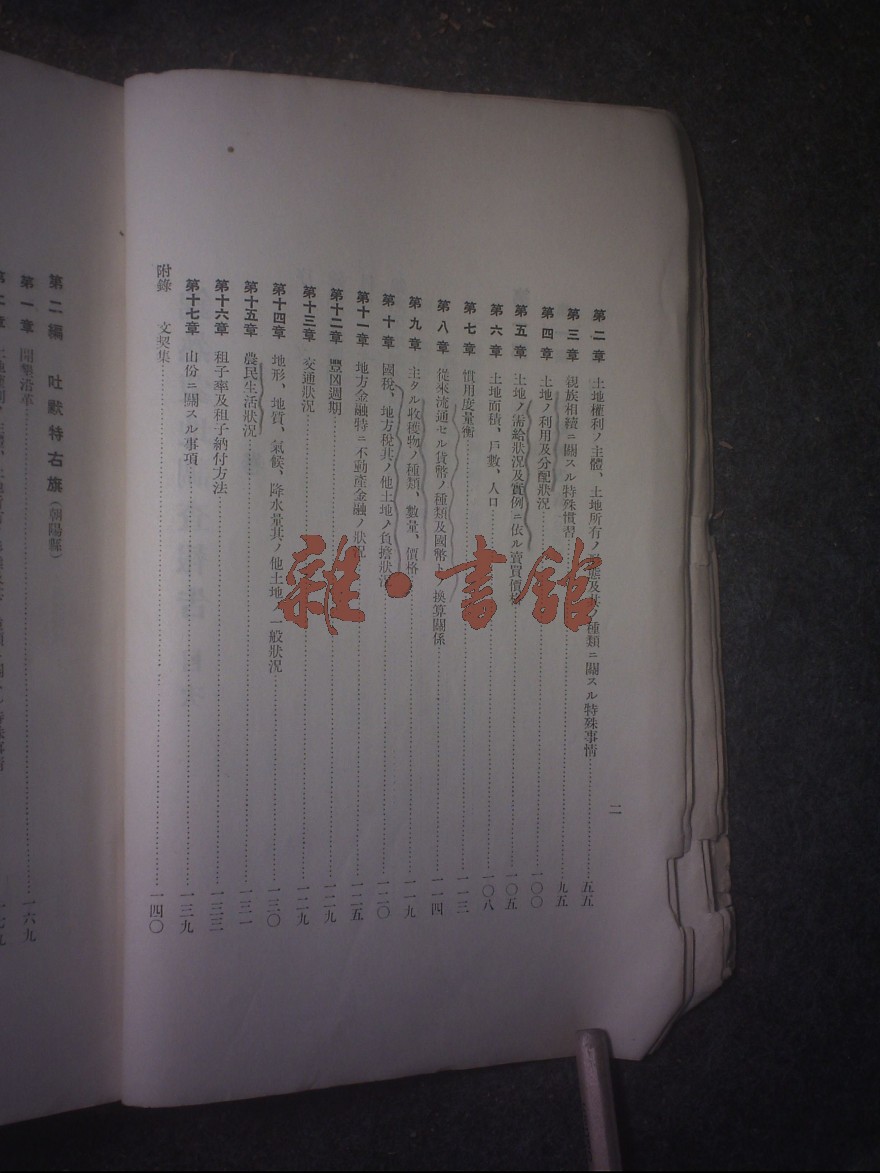 二
第二章 土地權利ノ主體、土地所有ノ 態及其ノ種類ニ關スル特殊事情 五五
第三章 親族相續ニ關スル特殊慣習 九五
第四章 土地ノ利用及分配狀況 一〇〇
第五章 土地ノ需給狀況及實例ニ依ル賣買價格 一〇五
第六章 土地面積、戶數、人口 一〇八
第七章 慣用度量衡 一一三
第八章 從來流通セル貨幣ノ種類及國幣トノ換算關係 一一四
第九章 主タル收穫物ノ種類、數量、價格 一一九
第十章 國稅、地方稅其ノ他土地ノ負擔狀況 一二〇
第十一章 地方金融特ニ不動產金融ノ狀況 一二五
第十二章 豐凶週期 一二九
第十三章 交通狀況 一二九
第十四章 地形、地質、氣候、降水量其ノ他土地ノ一般狀況 一三〇
第十五章 農民生活狀況 一三一
第十六章 租子率及租子納付方法 一三三
第十七章 山份ニ關スル事項 一三九
附錄 文契集 一四〇
第二編 吐默特右旗(朝陽縣)
第一章 開墾沿革 一六九
雜·書館